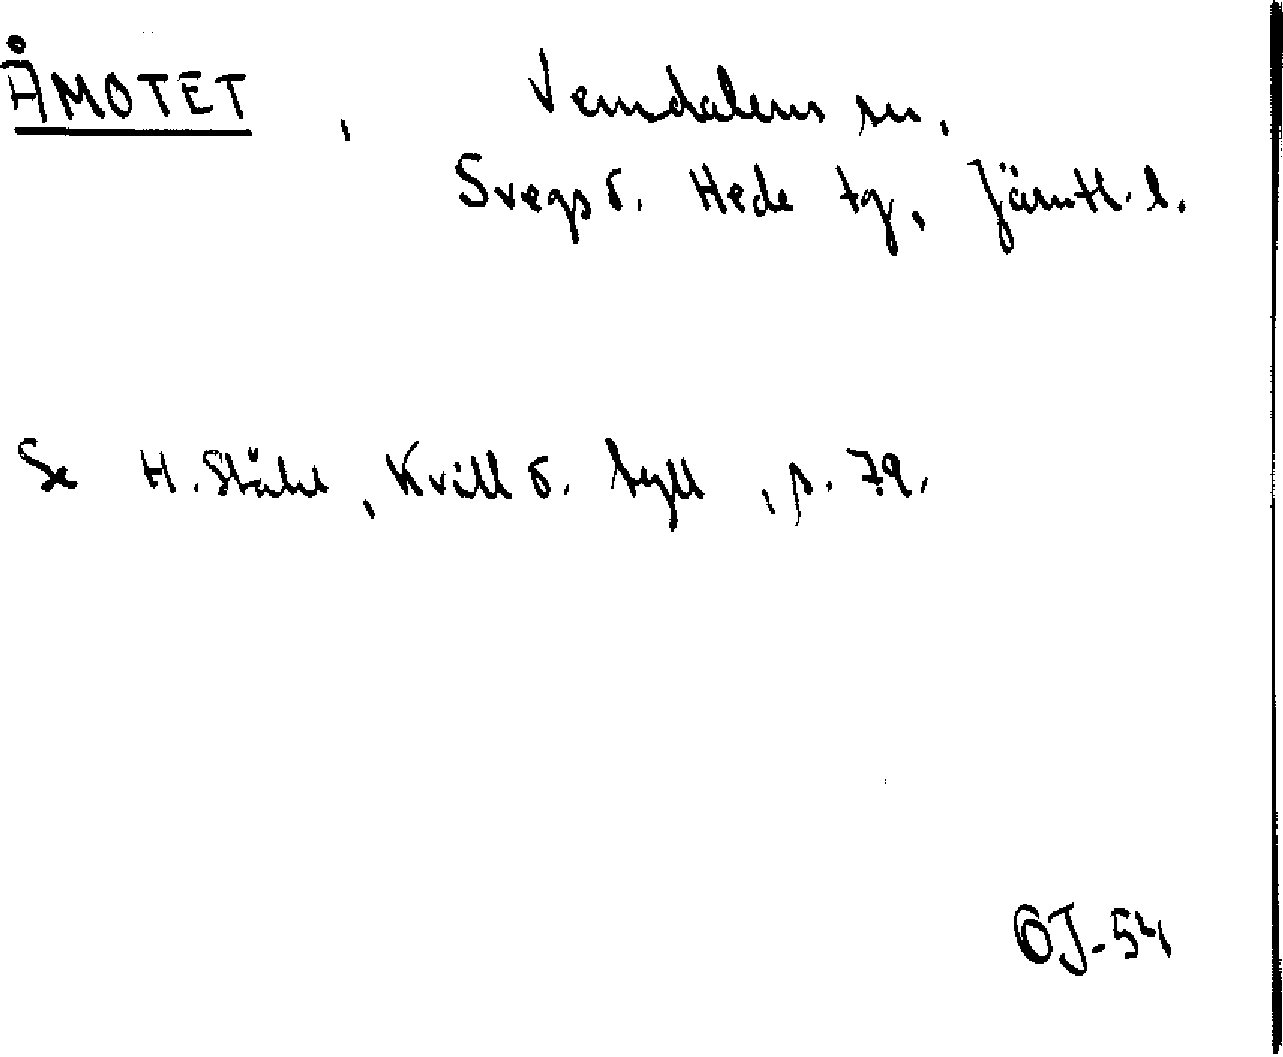 ÅMOTET , Vemdalens sn,
Svegs o. Hede tg, Jämtl. l.
Se H. Ståhl, Kvill o. tyll, s. 79.
OJ-54